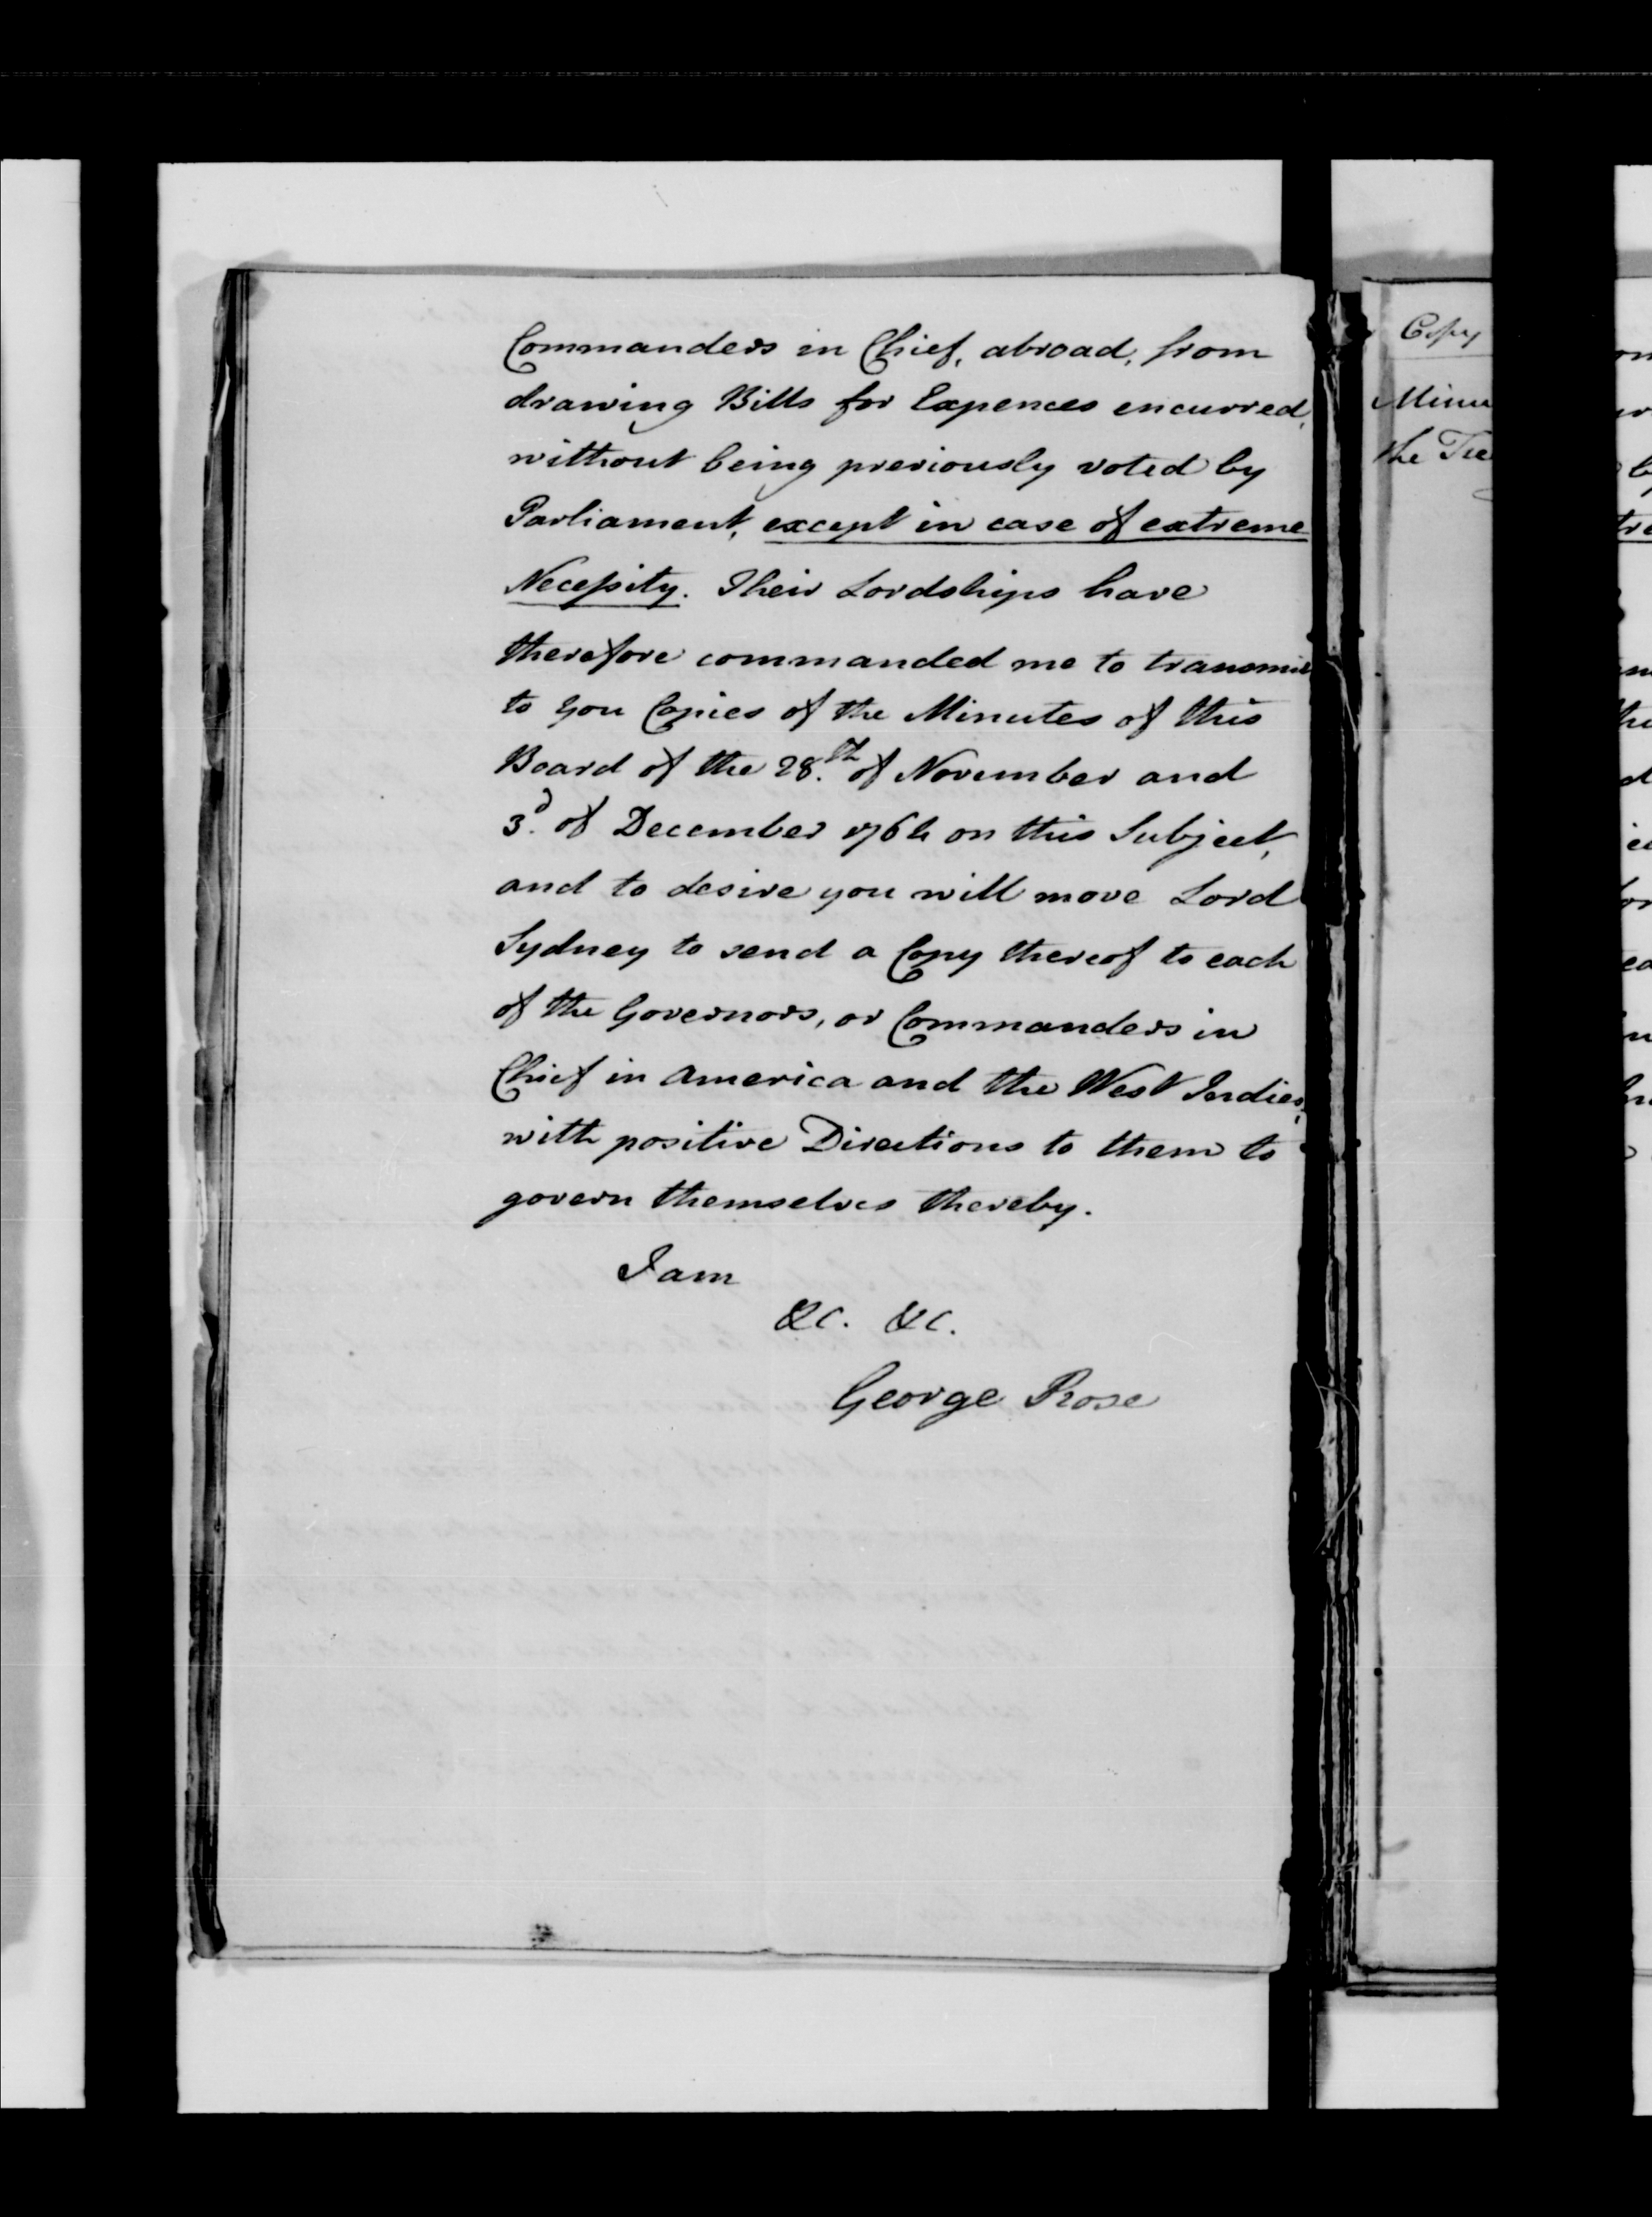 Commanders in Chief, abroad, from
drawing Bills for Expences encurred,
without being previously voted by
Parliament, except in case of extreme
Necessity. Their Lordships have
therefore commanded me to transmit
to You Copies of the Minutes of this
Board of the 28.th of November and
3.d of December 1764 on this Subject,
and to desire you will move Lord
Sydney to send a Copy thereof to each
of the Governors, or Commanders in
Chief in America and the West Indies,
with positive Directions to them to
govern themselves thereby.
I am
&c. &c.
George Rose
Copy
Minu
the Tre